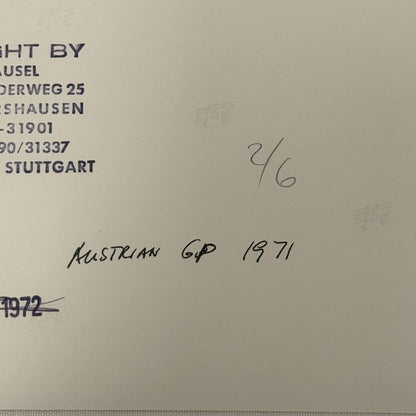 GHT BY
AUSEL
DERWEG 25
RSHAUSEN
-31901
90/31337
STUTTGART
2/6
AUSTRIAN GP 1971
1972